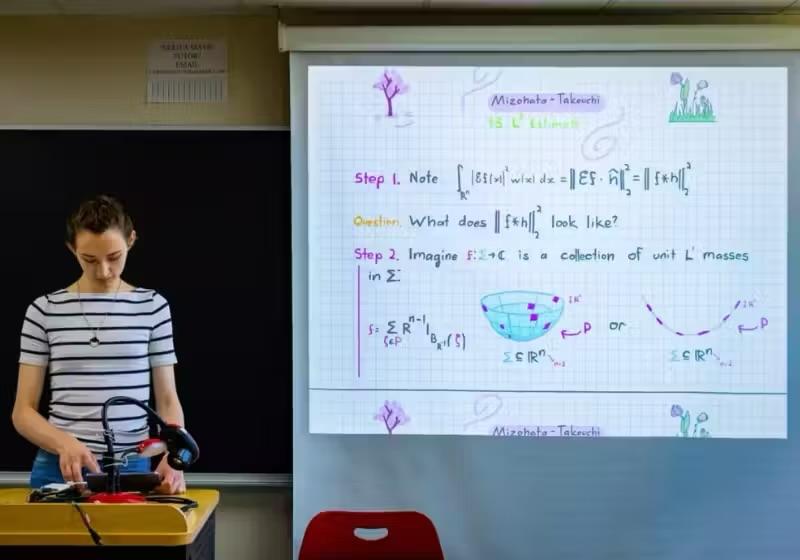 Mizohata-Takeuchi
Step 1. Note ∫_{ℝⁿ} |Ef(x)|² w(x) dx = ‖Ef · ĥ‖₂² = ‖f*h‖₂²
Question. What does ‖f*h‖₂² look like?
Step 2. Imagine f:Σ→ℂ is a collection of unit L¹ masses
in Σ
f = Σ_{ξ∈P} R^{n-1} 1_{B_{R⁻¹}(ξ)}
P or P
Σ ⊆ ℝⁿ Σ ⊆ ℝⁿ
Mizohata-Takeuchi